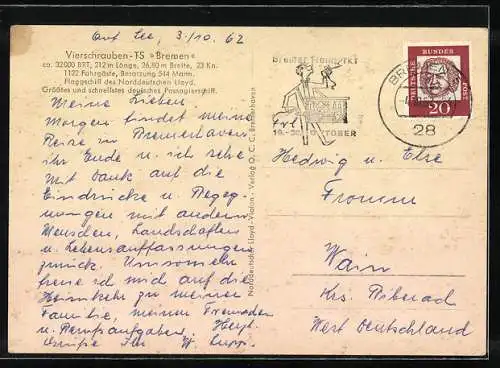 Auf See, 3./10. 62
Vierschrauben-TS »Bremen«
ca. 32000 BRT, 212 m Länge, 26,80 m Breite, 23 Kn.
1122 Fahrgäste, Besatzung 544 Mann.
Flaggschiff des Norddeutschen Lloyd.
Größtes und schnellstes deutsches Passagierschiff.
Meine Lieben
Morgen findet meine
Reise in Bremerhaven
ihr Ende u. ich sehe
mit Dank auf die
Eindrücke u. Begeg-
nungen mit andern
Menschen, Landschaften
u. Lebensauffassungen
zurück. Umsomehr
freue ich mich auf die
Heimkehr zu meiner
Familie, meinen Freunden
u. Berufsaufgaben. Herzl.
Grüße Ihr W.
Norddeutscher Lloyd
Verlag O. C. C. Bremerhaven
Bremer Freimarkt
OKTOBER
28
DEUTSCHE
BUNDES
POST
20
Hedwig u. Else
Fromm
Wain
Krs. Biberach
West Deutschland